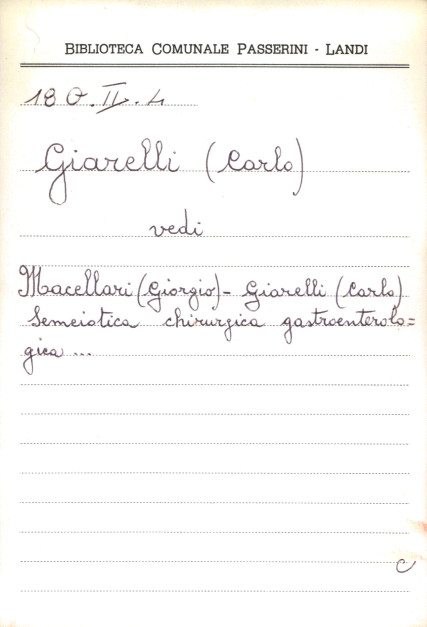 BIBLIOTECA COMUNALE PASSERINI - LANDI
18 O. II. 4
Giarelli (Carlo)
vedi
Macellari (Giorgio) - Giarelli (Carlo)
Semeiotica chirurgica gastroenterolo=
gica ...
C